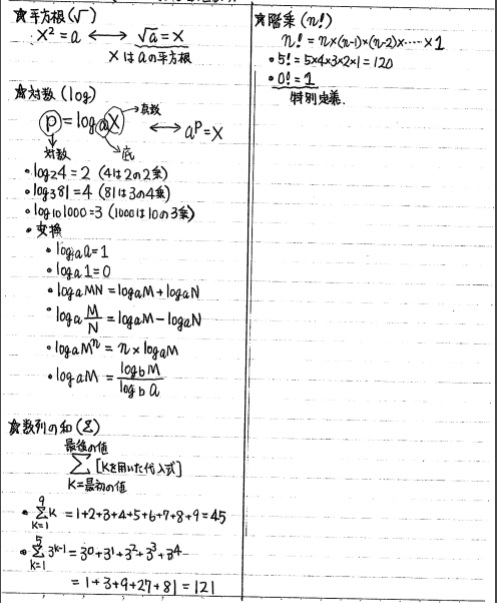 ☆平方根(√)
x²=a ⟷ √a=x
xはaの平方根
☆対数(log)
p=logₐx ⟷ aᵖ=x
真数
対数
底
・log₂4=2 (4は2の2乗)
・log₃81=4 (81は3の4乗)
・log₁₀1000=3 (1000は10の3乗)
・変換
・logₐa=1
・logₐ1=0
・logₐMN=logₐM+logₐN
・logₐM/N=logₐM-logₐN
・logₐMⁿ=n×logₐM
・logₐM=log_b M/log_b a
☆数列の和(Σ)
最後の値
Σ[Kを用いた代入式]
K=最初の値
・9
ΣK =1+2+3+4+5+6+7+8+9=45
K=1
・5
Σ3ᴷ⁻¹=3⁰+3¹+3²+3³+3⁴
K=1
=1+3+9+27+81=121
☆階乗(n!)
n!=n×(n-1)×(n-2)×……×1
・5!=5×4×3×2×1=120
・0!=1
特別定義.